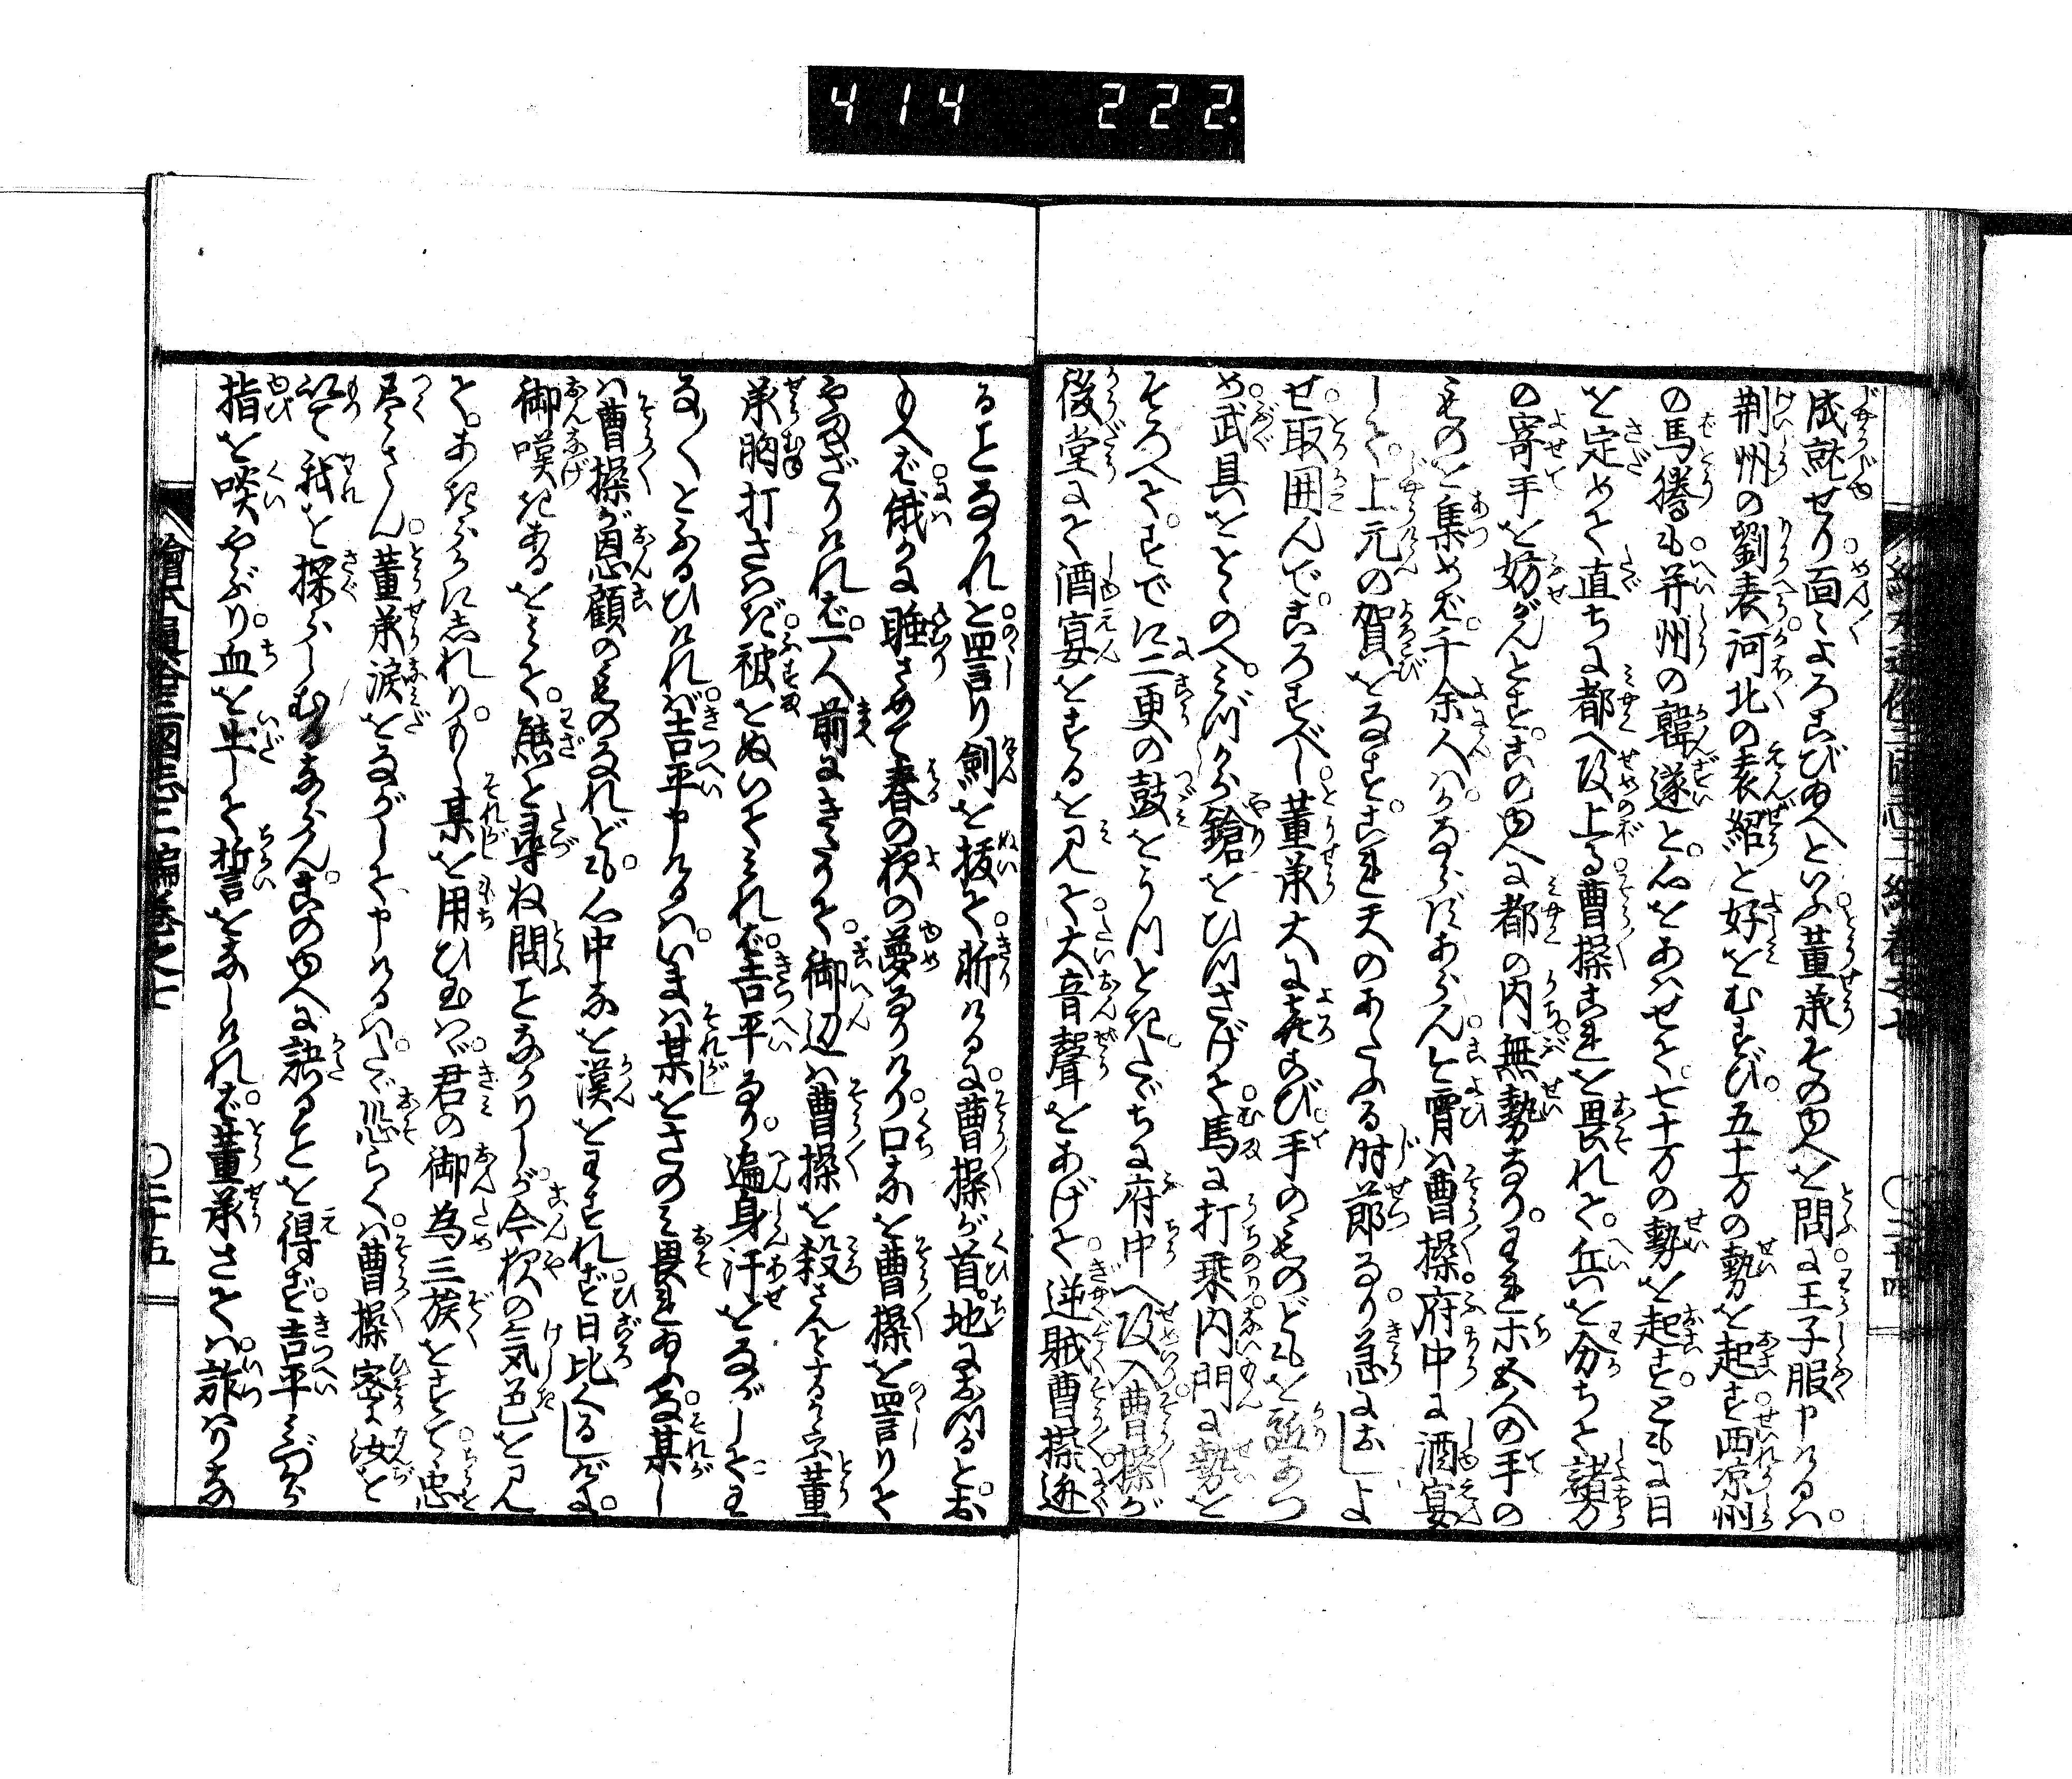 414 222
成就せり面〻よろこびあへといふ董承そのゆへを問ふに王子服申けるハ
荊州の劉表河北の袁紹と好をむすび五十万の勢を起す西凉州
の馬騰も并州の韓遂と心をあハせて七十万の勢を起すともに日
を定めて直ちに都へ攻上る曹操これを畏れて兵を分ちて諸方
の寄手を妨がんとすこのゆへに都の内無勢なりわれ木五人の手の
ものを集めバ千余人ハかならずあらん今宵ハ曹操府中に酒宴
して上元の賀をなすこれ天のあたふる时節なり急におしよ
せ取囲んでころすべし董承大によろこび手のものどもを駈あつ
め武具をとゝのへミづから鎗をひつさげて馬に打乗内門に勢を
そろへてすでに二更の鼓をうつときたゞちに府中へ攻入曹操が
後堂にて酒宴をするを見て大音聲をあげて逆賊曹操迯
ることなかれと罵り劍を抜て斫けるに曹操が首地におつるとお
もへバ俄かに睡さめて春の夜の夢なりけり口なを曹操を罵りて
やまざりけれバ一人前にきたりて御辺ハ曹操を殺さんとするか京董
承胸打さハぎ被をぬいてミれバ吉平なり遍身汗をながしてわ
な〱とふるひけれバ吉平申けるハいまハ某をさのミ畏れあふな某し
ハ曹操が恩顧のものなれども心中なを漢をわすれず日比くるしげに
御嘆きあるをミて無と尋ね問ことなかりしが今夜の気色を見
てあきらかに志れりもし某を用ひ玉ハゞ君の御為三族をすてゝ忠
尽さん董承涙をながして申けるハたゞ恐らくハ曹操密に汝を
以て我を探らしむるならんこのゆへに訣ることを得ず吉平ミづから
指を啖やぶり血を出して誓をなしけれバ董承さてハ詐りな
繪本通俗三國志二編巻之七 〇二十四
繪本通俗三國志二編巻之七 〇二十五